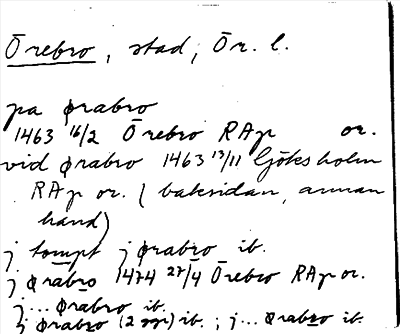 Örebro, stad, Ör. l.
pa ørabro
1463 16/2 Örebro RAp or.
vid ørabro 1463 13/11 Göksholm
RAp or. (baksidan, annan
hand)
j tompt j ørabro ib.
j ørabro 1474 27/4 Örebro RAp or.
j... ørabro ib.
j ørabro (2 ggr) ib.; j... ørabro ib.